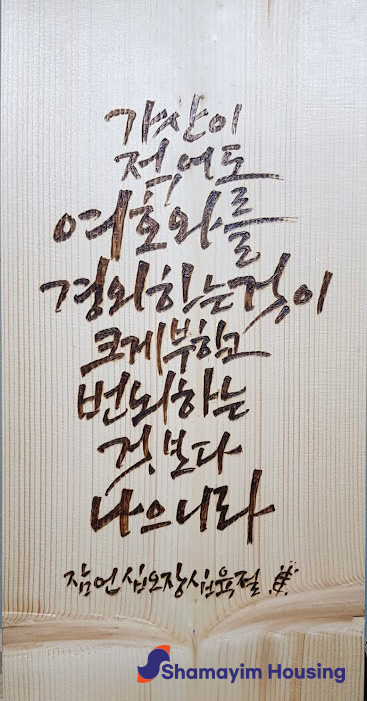 가산이
적어도
여호와를
경외하는것이
크게부하고
번뇌하는
것보다
나으니라
잠언십오장십육절
Shamayim Housing